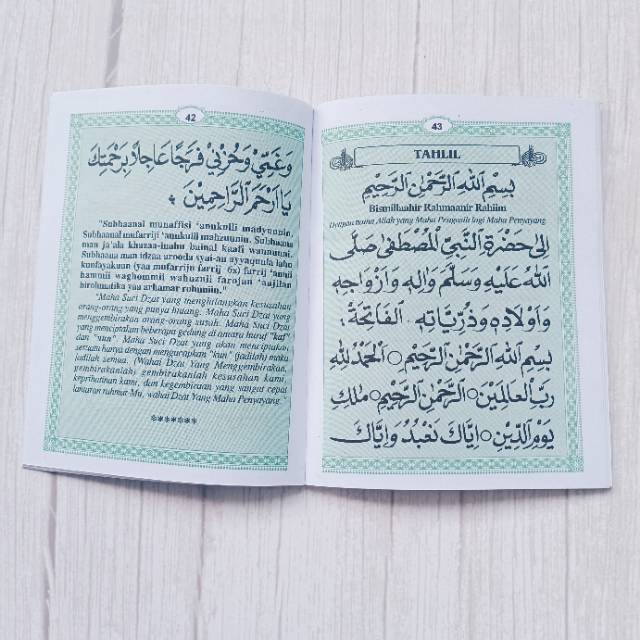 42
وَغَمِّيْ وَحُزْنِيْ فَرَجًا عَاجِلًا بِرَحْمَتِكَ
يَا اَرْحَمَ الرَّاحِمِيْنَ
"Subhaanal munaffisi 'anukulli madyuunin,
Subhaanal mufarriji 'anukulli mahzuunin. Subhaana
man ja'ala khazaa-inahu bainal kaafi wannuuni.
Subhaana man idzaa urooda syai-an ayyaquula lahu
kunfayakuun (yaa mufarrijn farrij 6x) farrij 'annii
hammii waghommii wahuznii farojan 'aajilan
birohmatika yaa arhamar rohimiin."
"Maha Suci Dzat yang menghilangkan kesusahan
orang-orang yang punya hutang. Maha Suci Dzat yang
menggembirakan orang-orang susah. Maha Suci Dzat
yang menciptakan beberapa gedung di antara huruf "kaf"
dan "nun". Maha Suci Dzat yang akan menciptakan
sesuatu hanya dengan mengucapkan "kun" (jadilah) maka
jadilah semua. (Wahai Dzat Yang Menggembirakan,
gembirakanlah) gembirakanlah kesusahan kami,
keprihatinan kami, dan kegembiraan yang sangat cepat
lantaran rahmat-Mu, wahai Dzat Yang Maha Penyayang."
*******
43
TAHLIL
بِسْمِ اللهِ الرَّحْمٰنِ الرَّحِيْمِ
Bismillaahir Rahmaanir Rahiim
Dengan nama Allah yang Maha Pengasih lagi Maha Penyayang
اِلٰى حَضْرَةِ النَّبِيِّ الْمُصْطَفٰى صَلَّى
اللهُ عَلَيْهِ وَسَلَّمَ وَاٰلِهِ وَاَزْوَاجِهِ
وَاَوْلَادِهِ وَذُرِّيَّاتِهِ . اَلْفَاتِحَةُ :
بِسْمِ اللهِ الرَّحْمٰنِ الرَّحِيْمِ ○ اَلْحَمْدُ لِلهِ
رَبِّ الْعَالَمِيْنَ ○ الرَّحْمٰنِ الرَّحِيْمِ ○ مٰلِكِ
يَوْمِ الدِّيْنِ ○ اِيَّاكَ نَعْبُدُ وَاِيَّاكَ